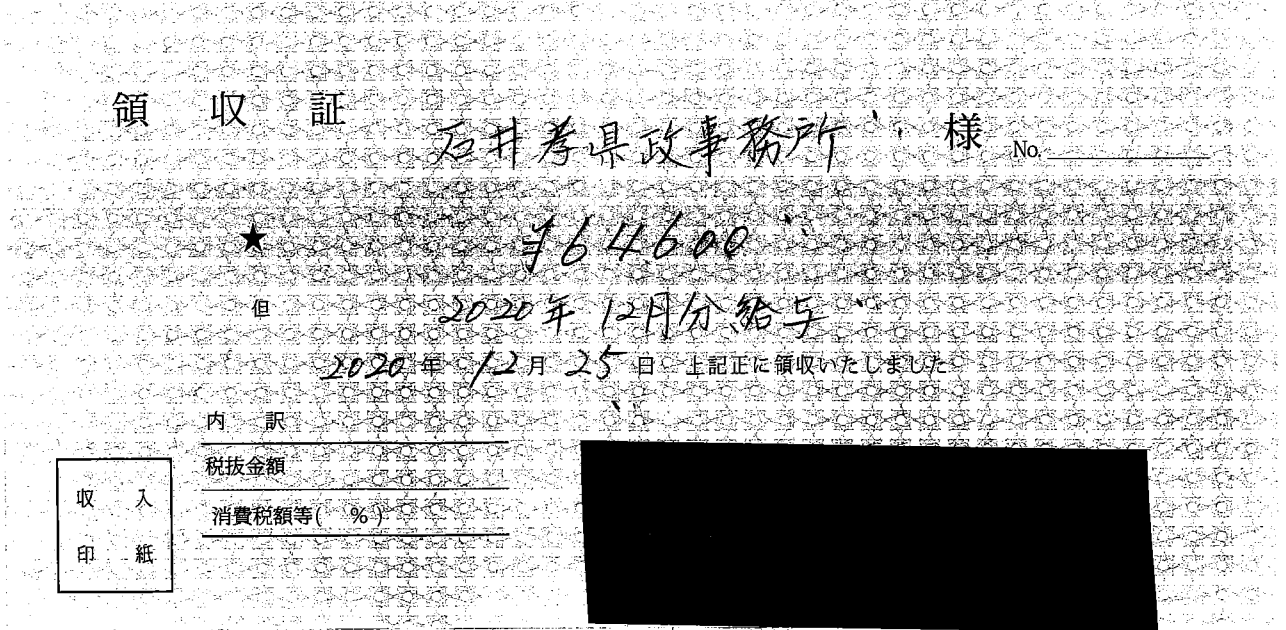 領 収 証
石井孝県政事務所 様 No.
★ ¥64600
但 2020年12月分給与
2020年12月25日 上記正に領収いたしました
内 訳
税抜金額
消費税額等( %)
収 入
印 紙